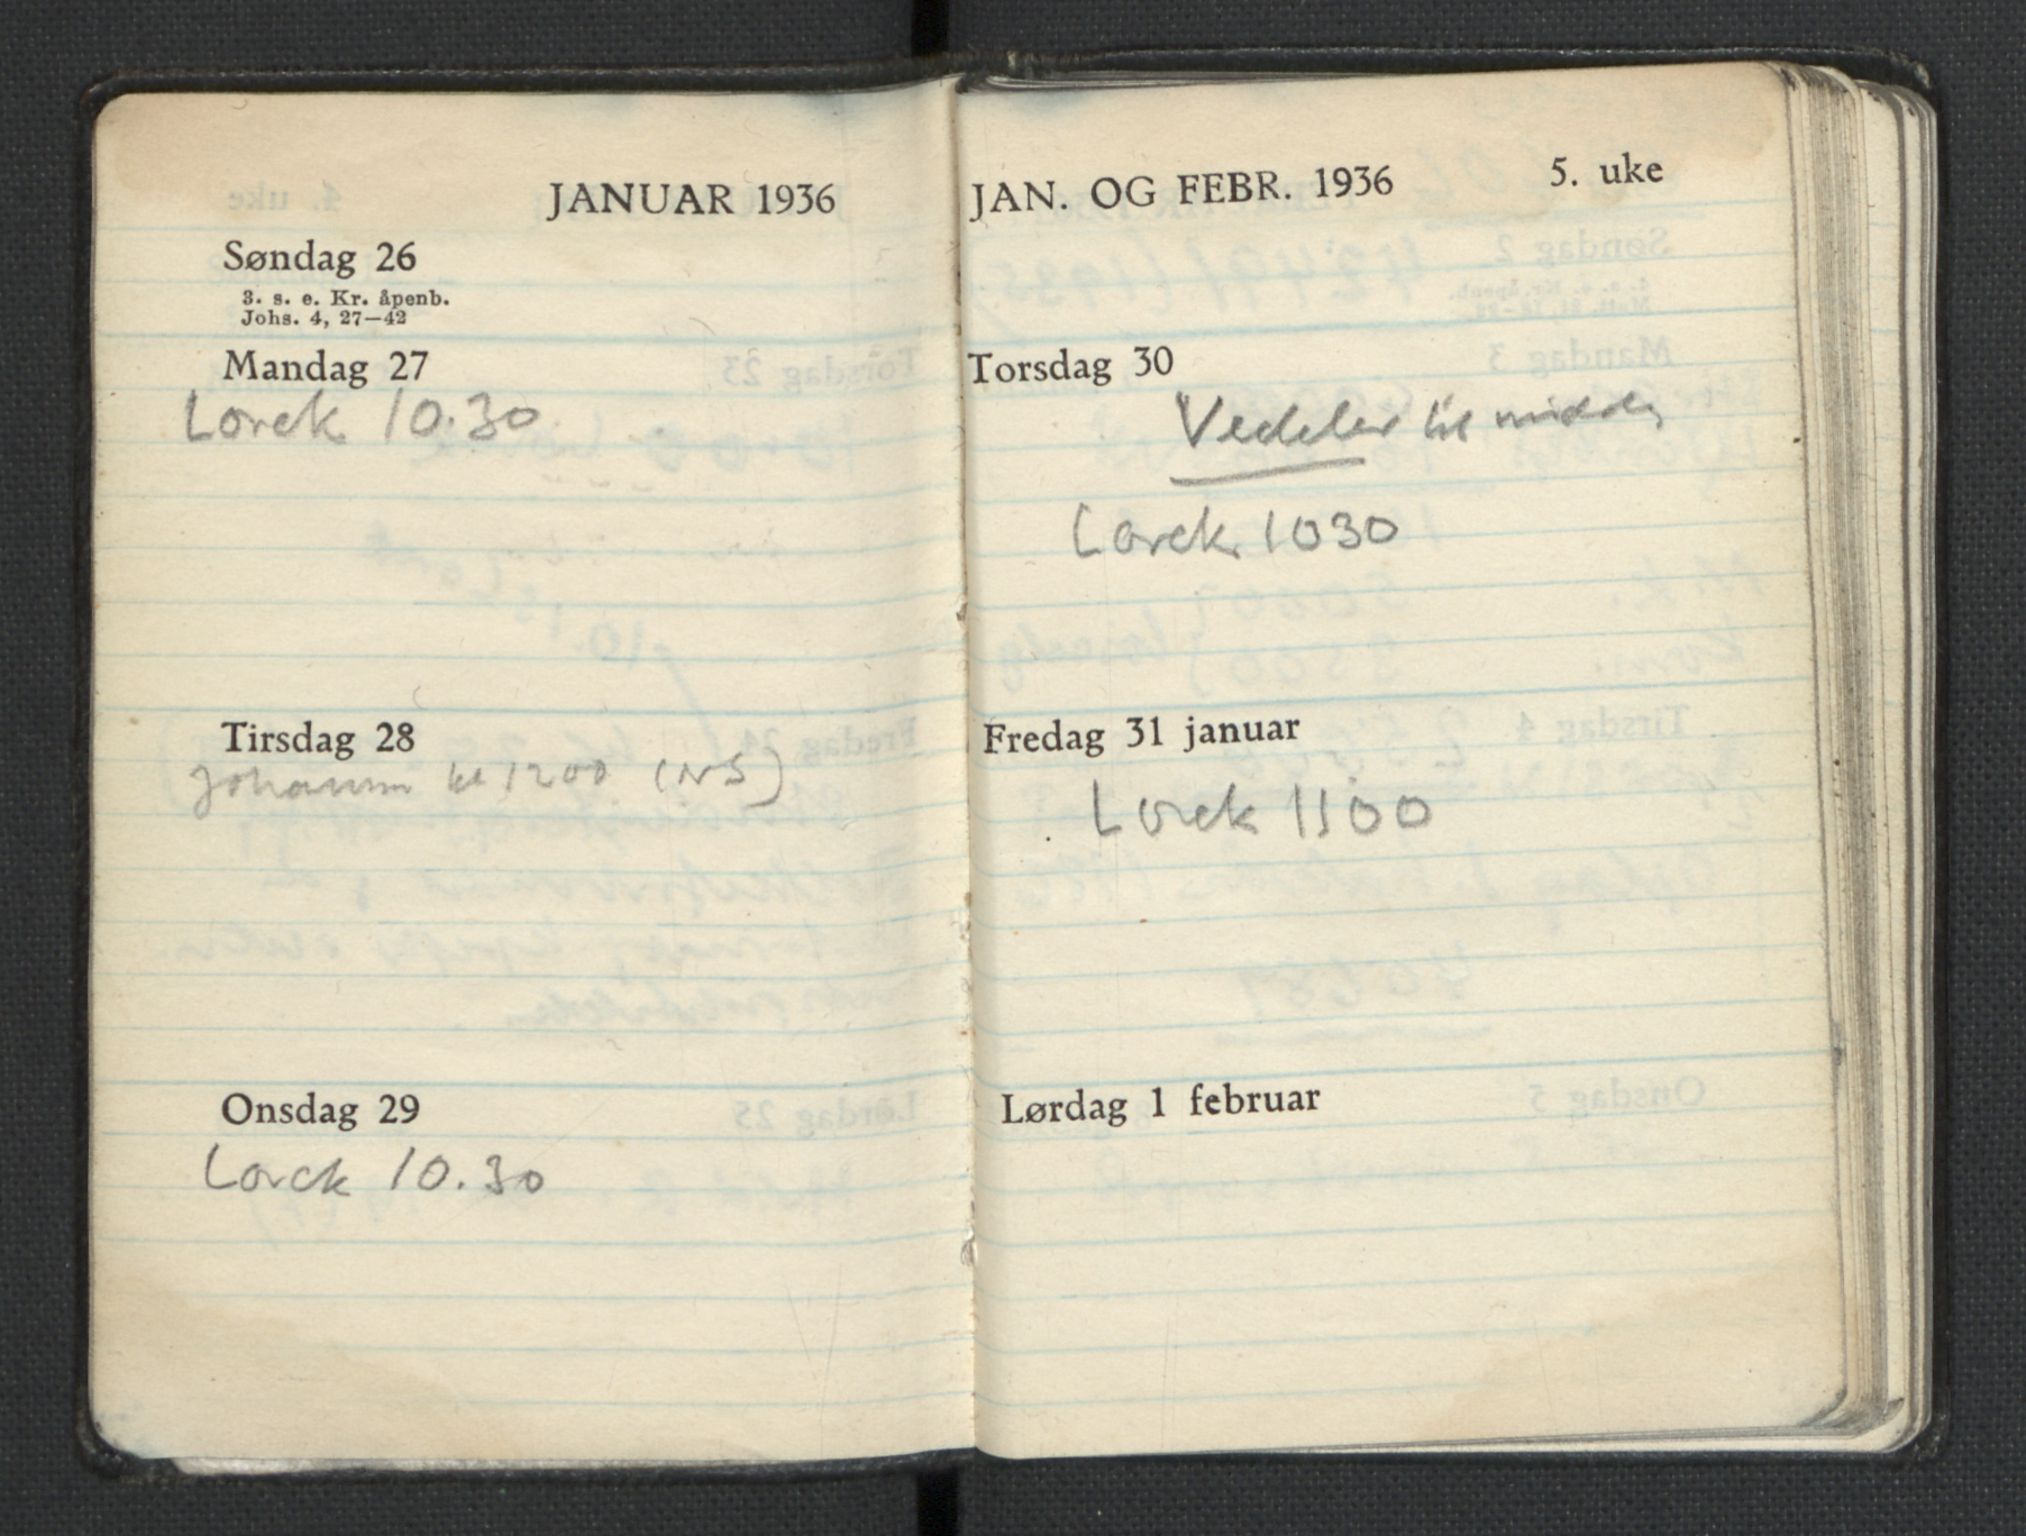 JANUAR 1936
Søndag 26
3. s. e. Kr. åpenb.
Johs. 4, 27—42
Mandag 27
Lorck 10.30
Tirsdag 28
Johannn kl 1200 (NS)
Onsdag 29
Lorck 10.30
JAN. OG FEBR. 1936 5. uke
Torsdag 30
Vedeler til middag
Lorck 1030
Fredag 31 januar
Lorck 1100
Lørdag 1 februar